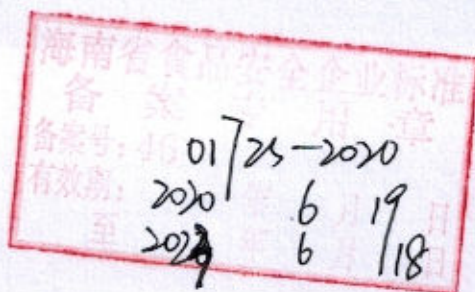 海南省食品安全企业标准
备案专用章
备案号:46 017 25-2020
有效期:2020年6月19日
至 年6月18日